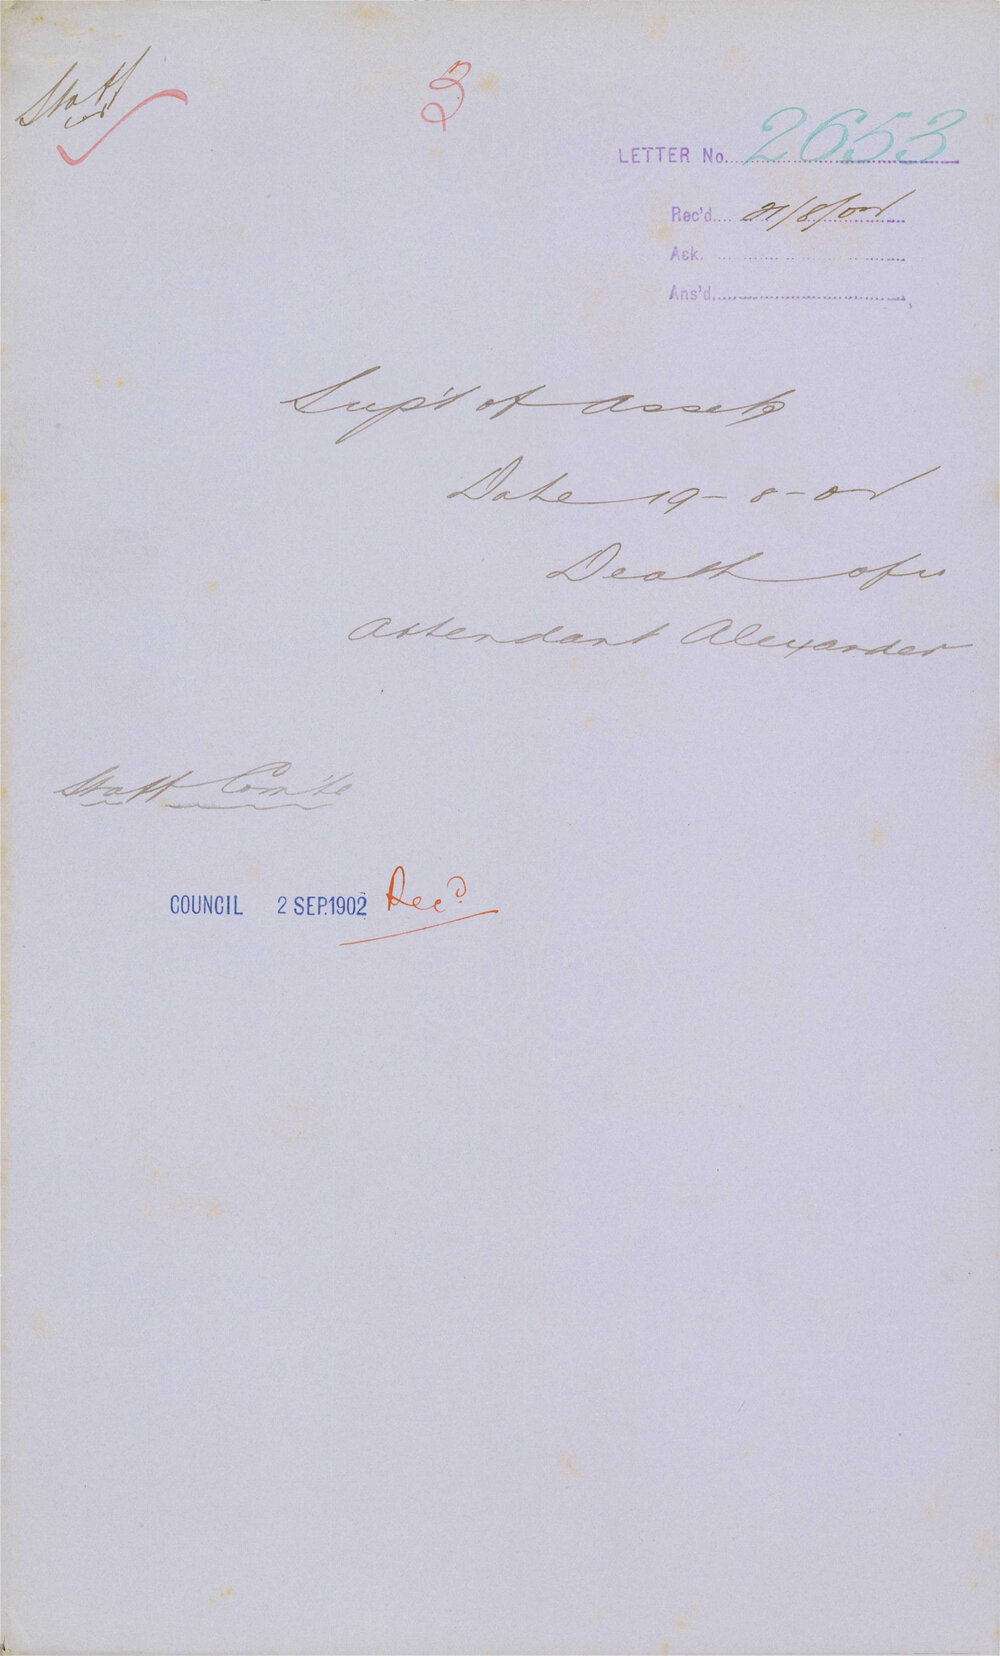 Staff
3
LETTER No. 2653
Rec'd. 21/8/02
Ack.
Ans'd.
Supt of Assets
Date 19-8-02
Death of
Attendant Alexander
Staff Com'te
COUNCIL 2 SEP.1902 Recd